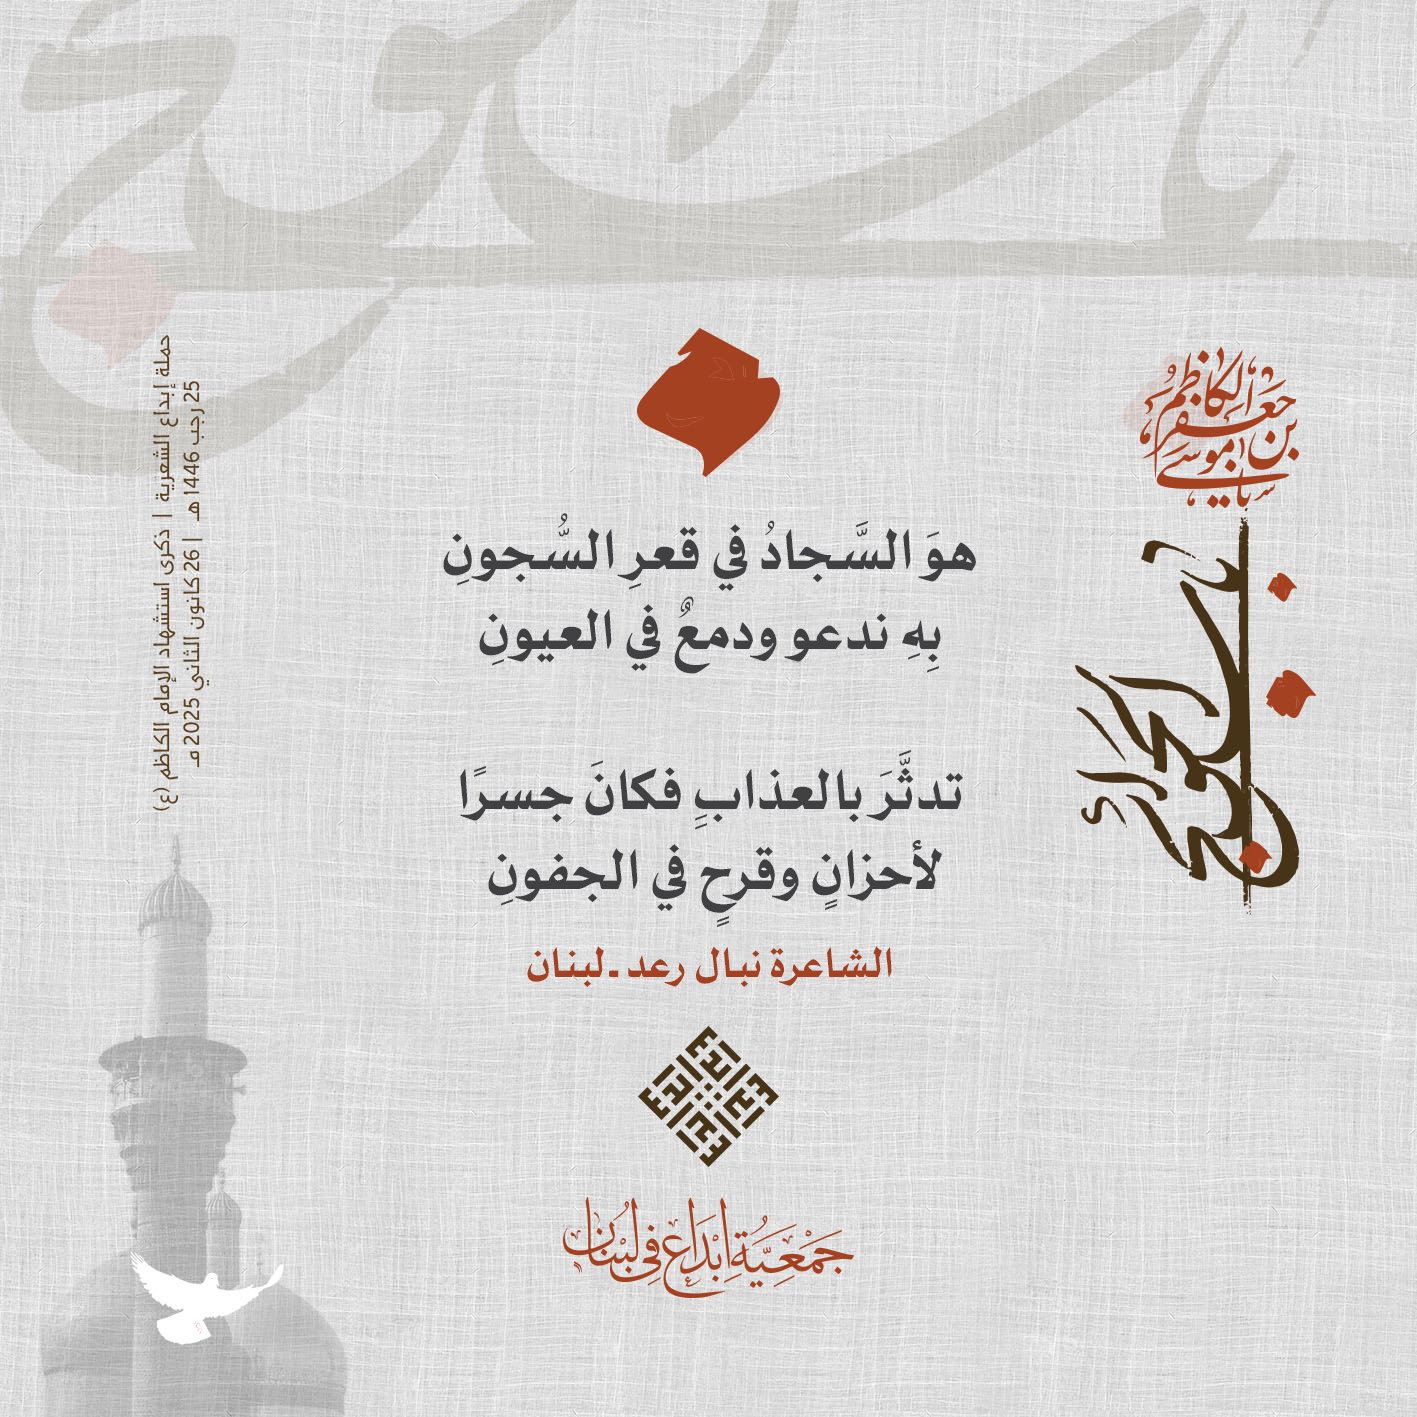 هوَ السَّجادُ في قعرِ السُّجونِ
بِهِ ندعو ودمعٌ في العيونِ
تدثَّرَ بالعذابِ فكانَ جسرًا
لأحزانٍ وقرحٍ في الجفونِ
الشاعرة نبال رعد ـ لبنان
جَمْعِيَّةُ إِبْدَاع فِي لُبْنَان
حملة إبداع الشعرية | ذكرى استشهاد الإمام الكاظم (ع)
25 رجب 1446 هـ | 26 كانون الثاني 2025 مـ
يا موسى
بن جعفر
الكاظم
باب الحوائج